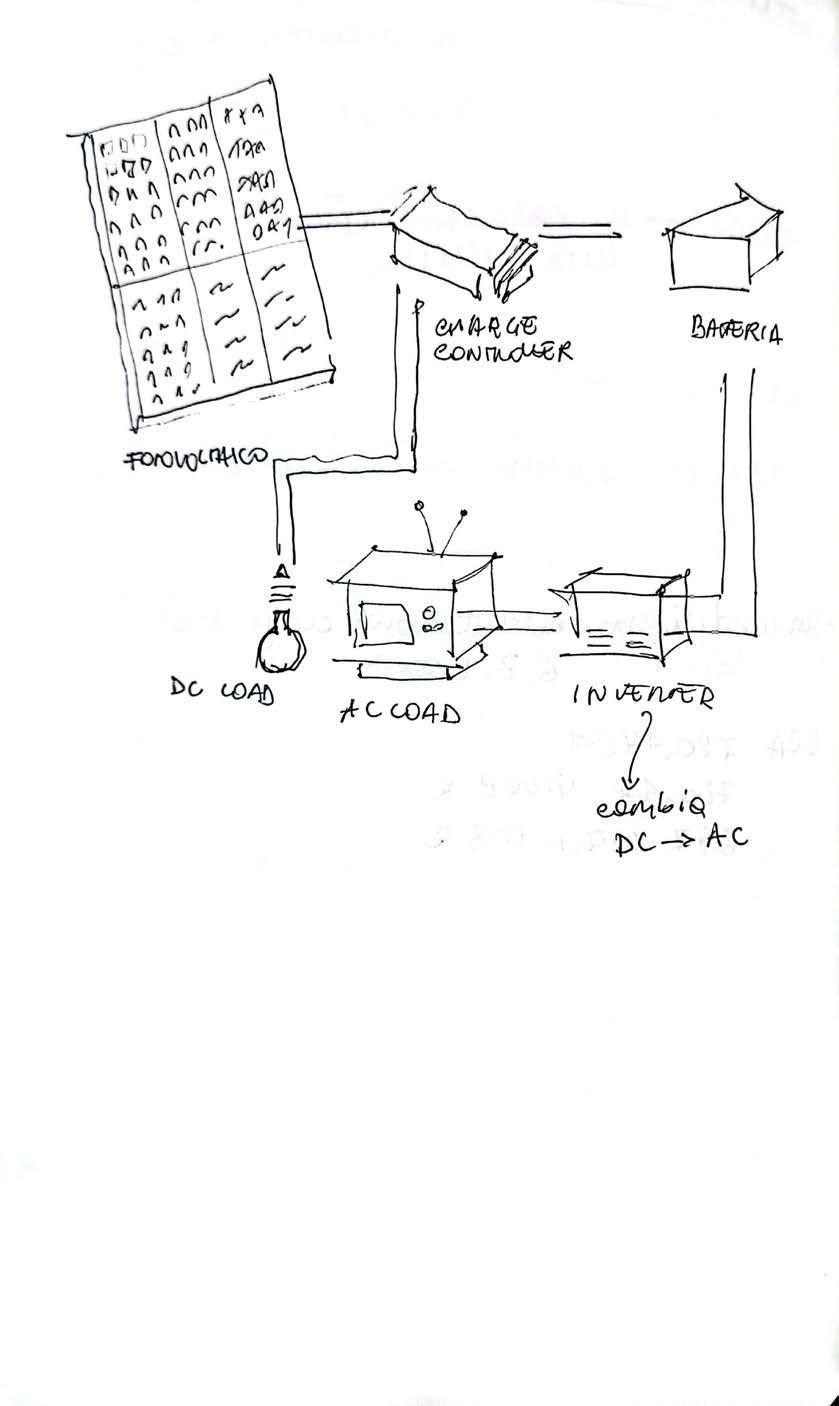 CHARGE
CONTROLER
BATERIA
FOTOVOLTAICO
DC LOAD
AC LOAD
INVERTER
cambia
DC → AC